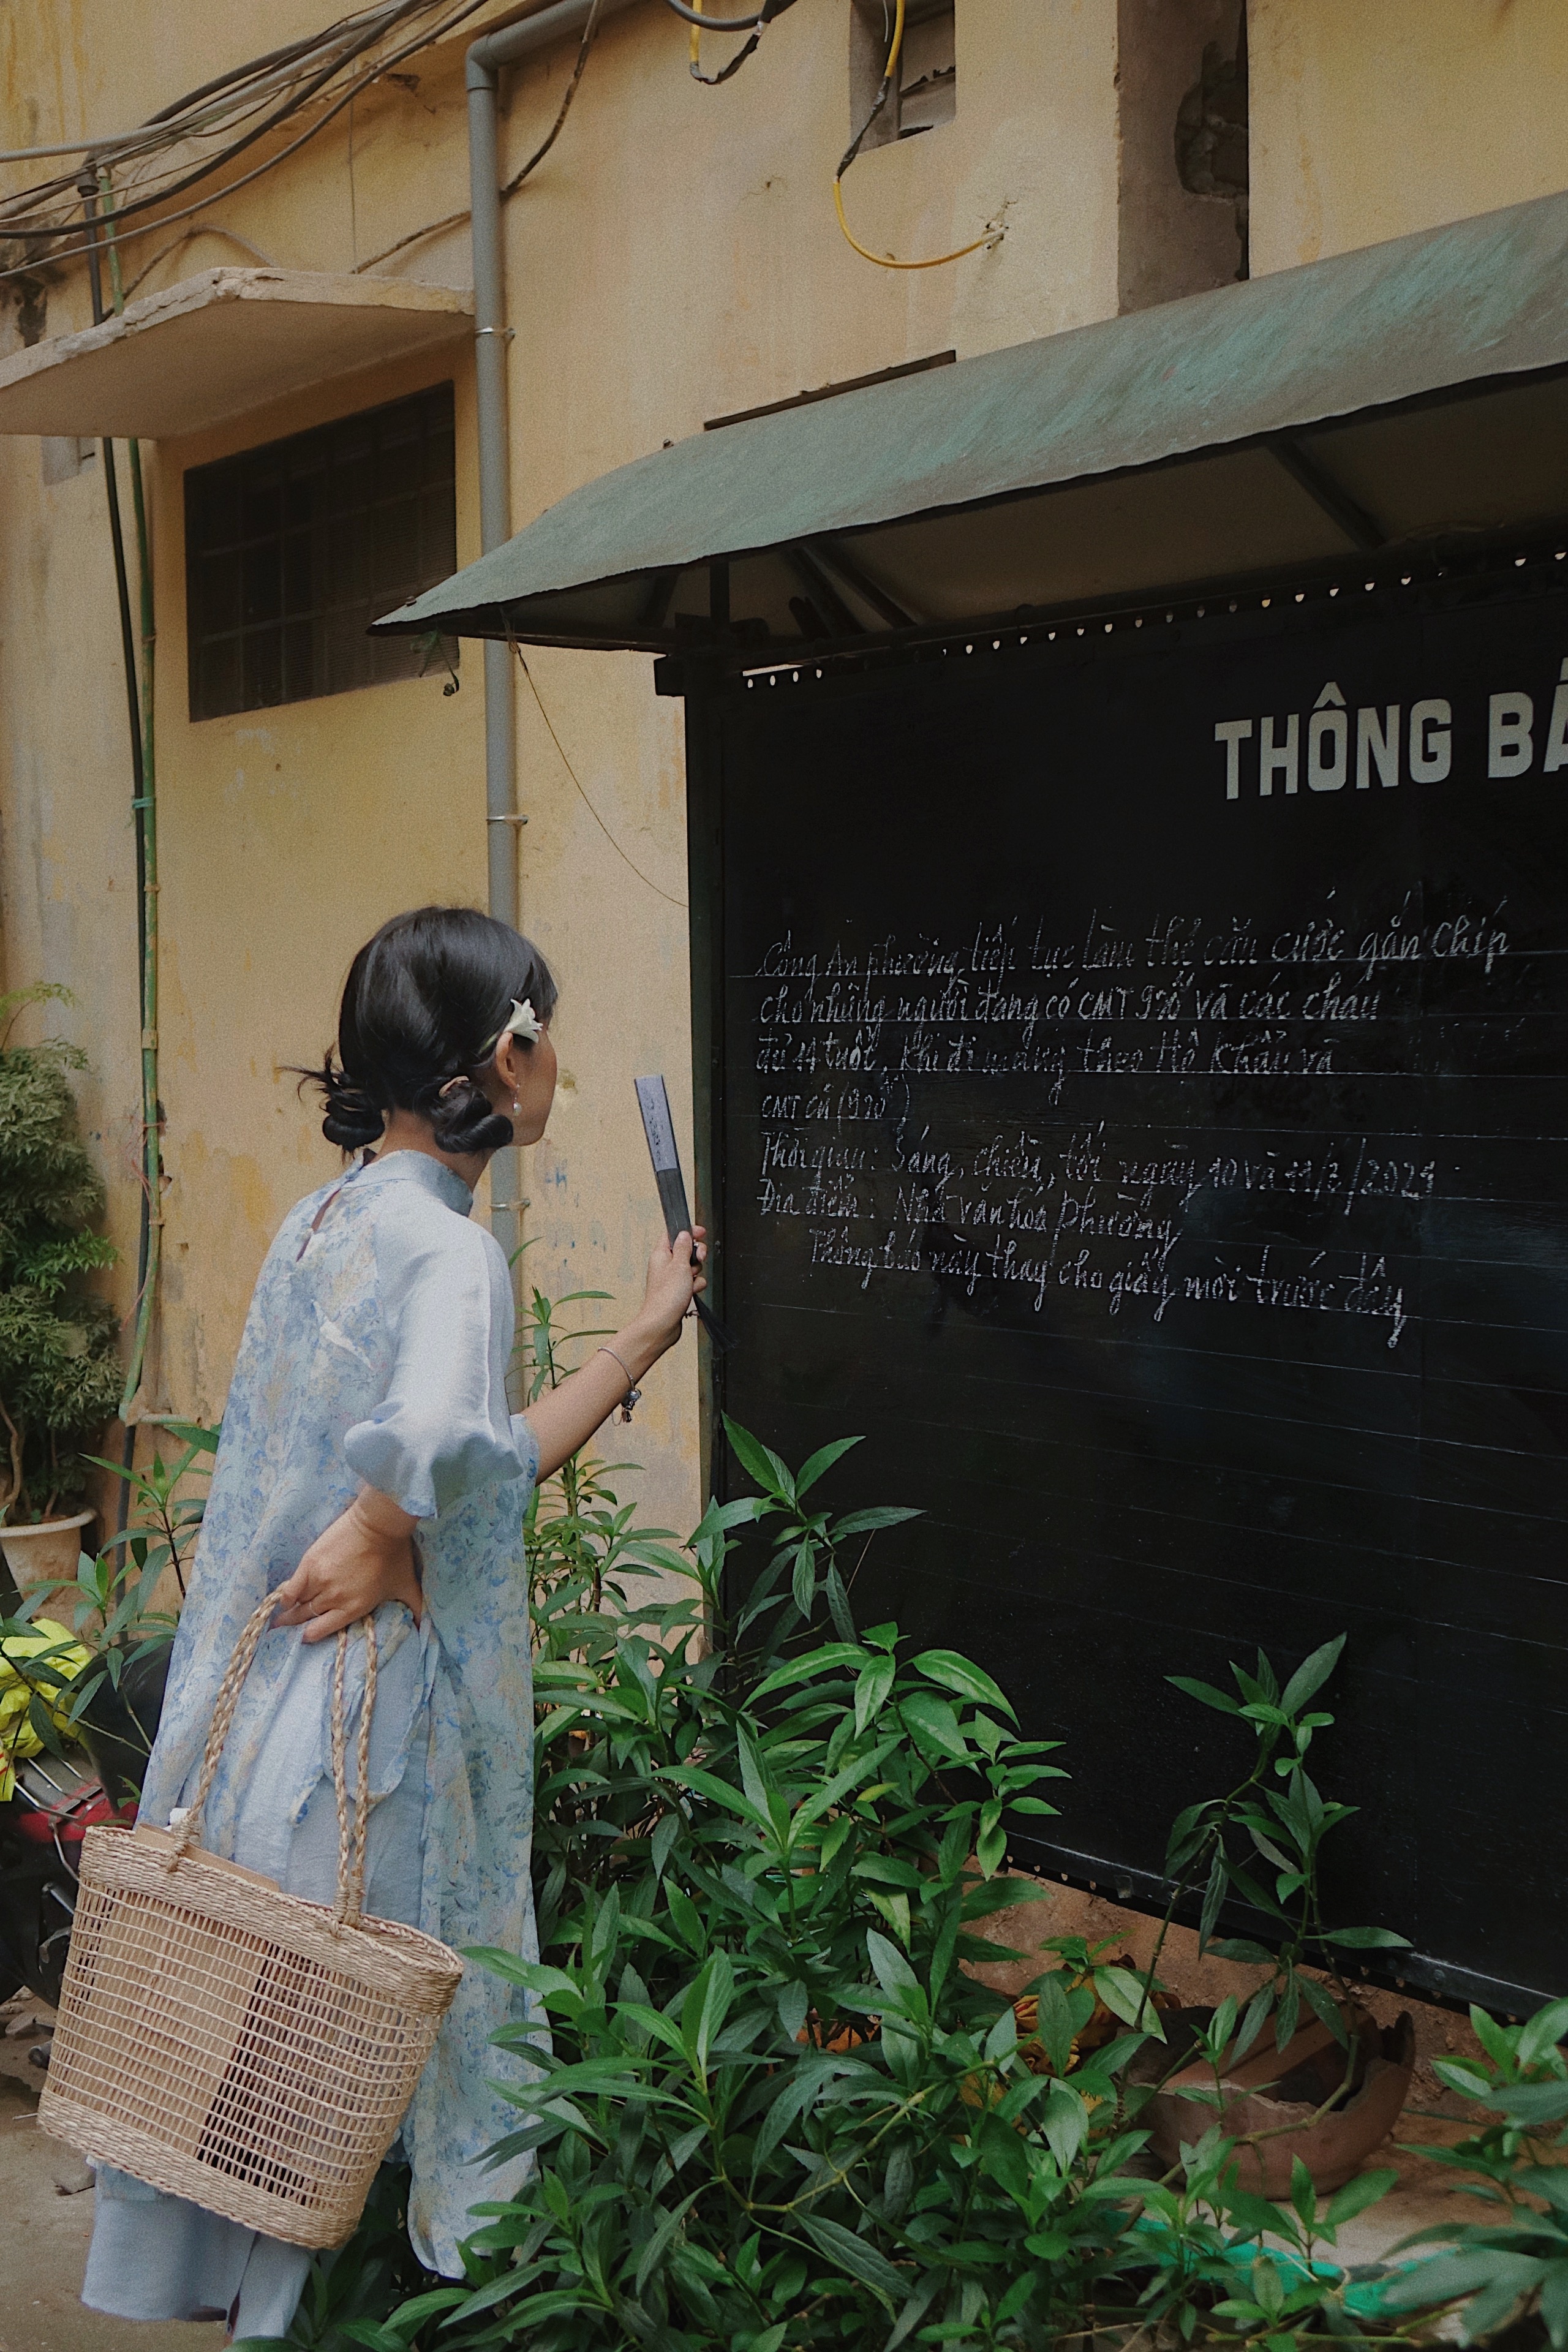 THÔNG BÁ
Công An phường tiếp tục làm thẻ căn cước gắn chíp
cho những người đang có CMT 9 số và các cháu
đủ 14 tuổi. Khi đi mang theo Hộ khẩu và
CMT cũ (9 số)
Thời gian: Sáng, chiều, tối ngày 10 và 11/ /2021
Địa điểm: Nhà văn hóa phường
Thông báo này thay cho giấy mời trước đây